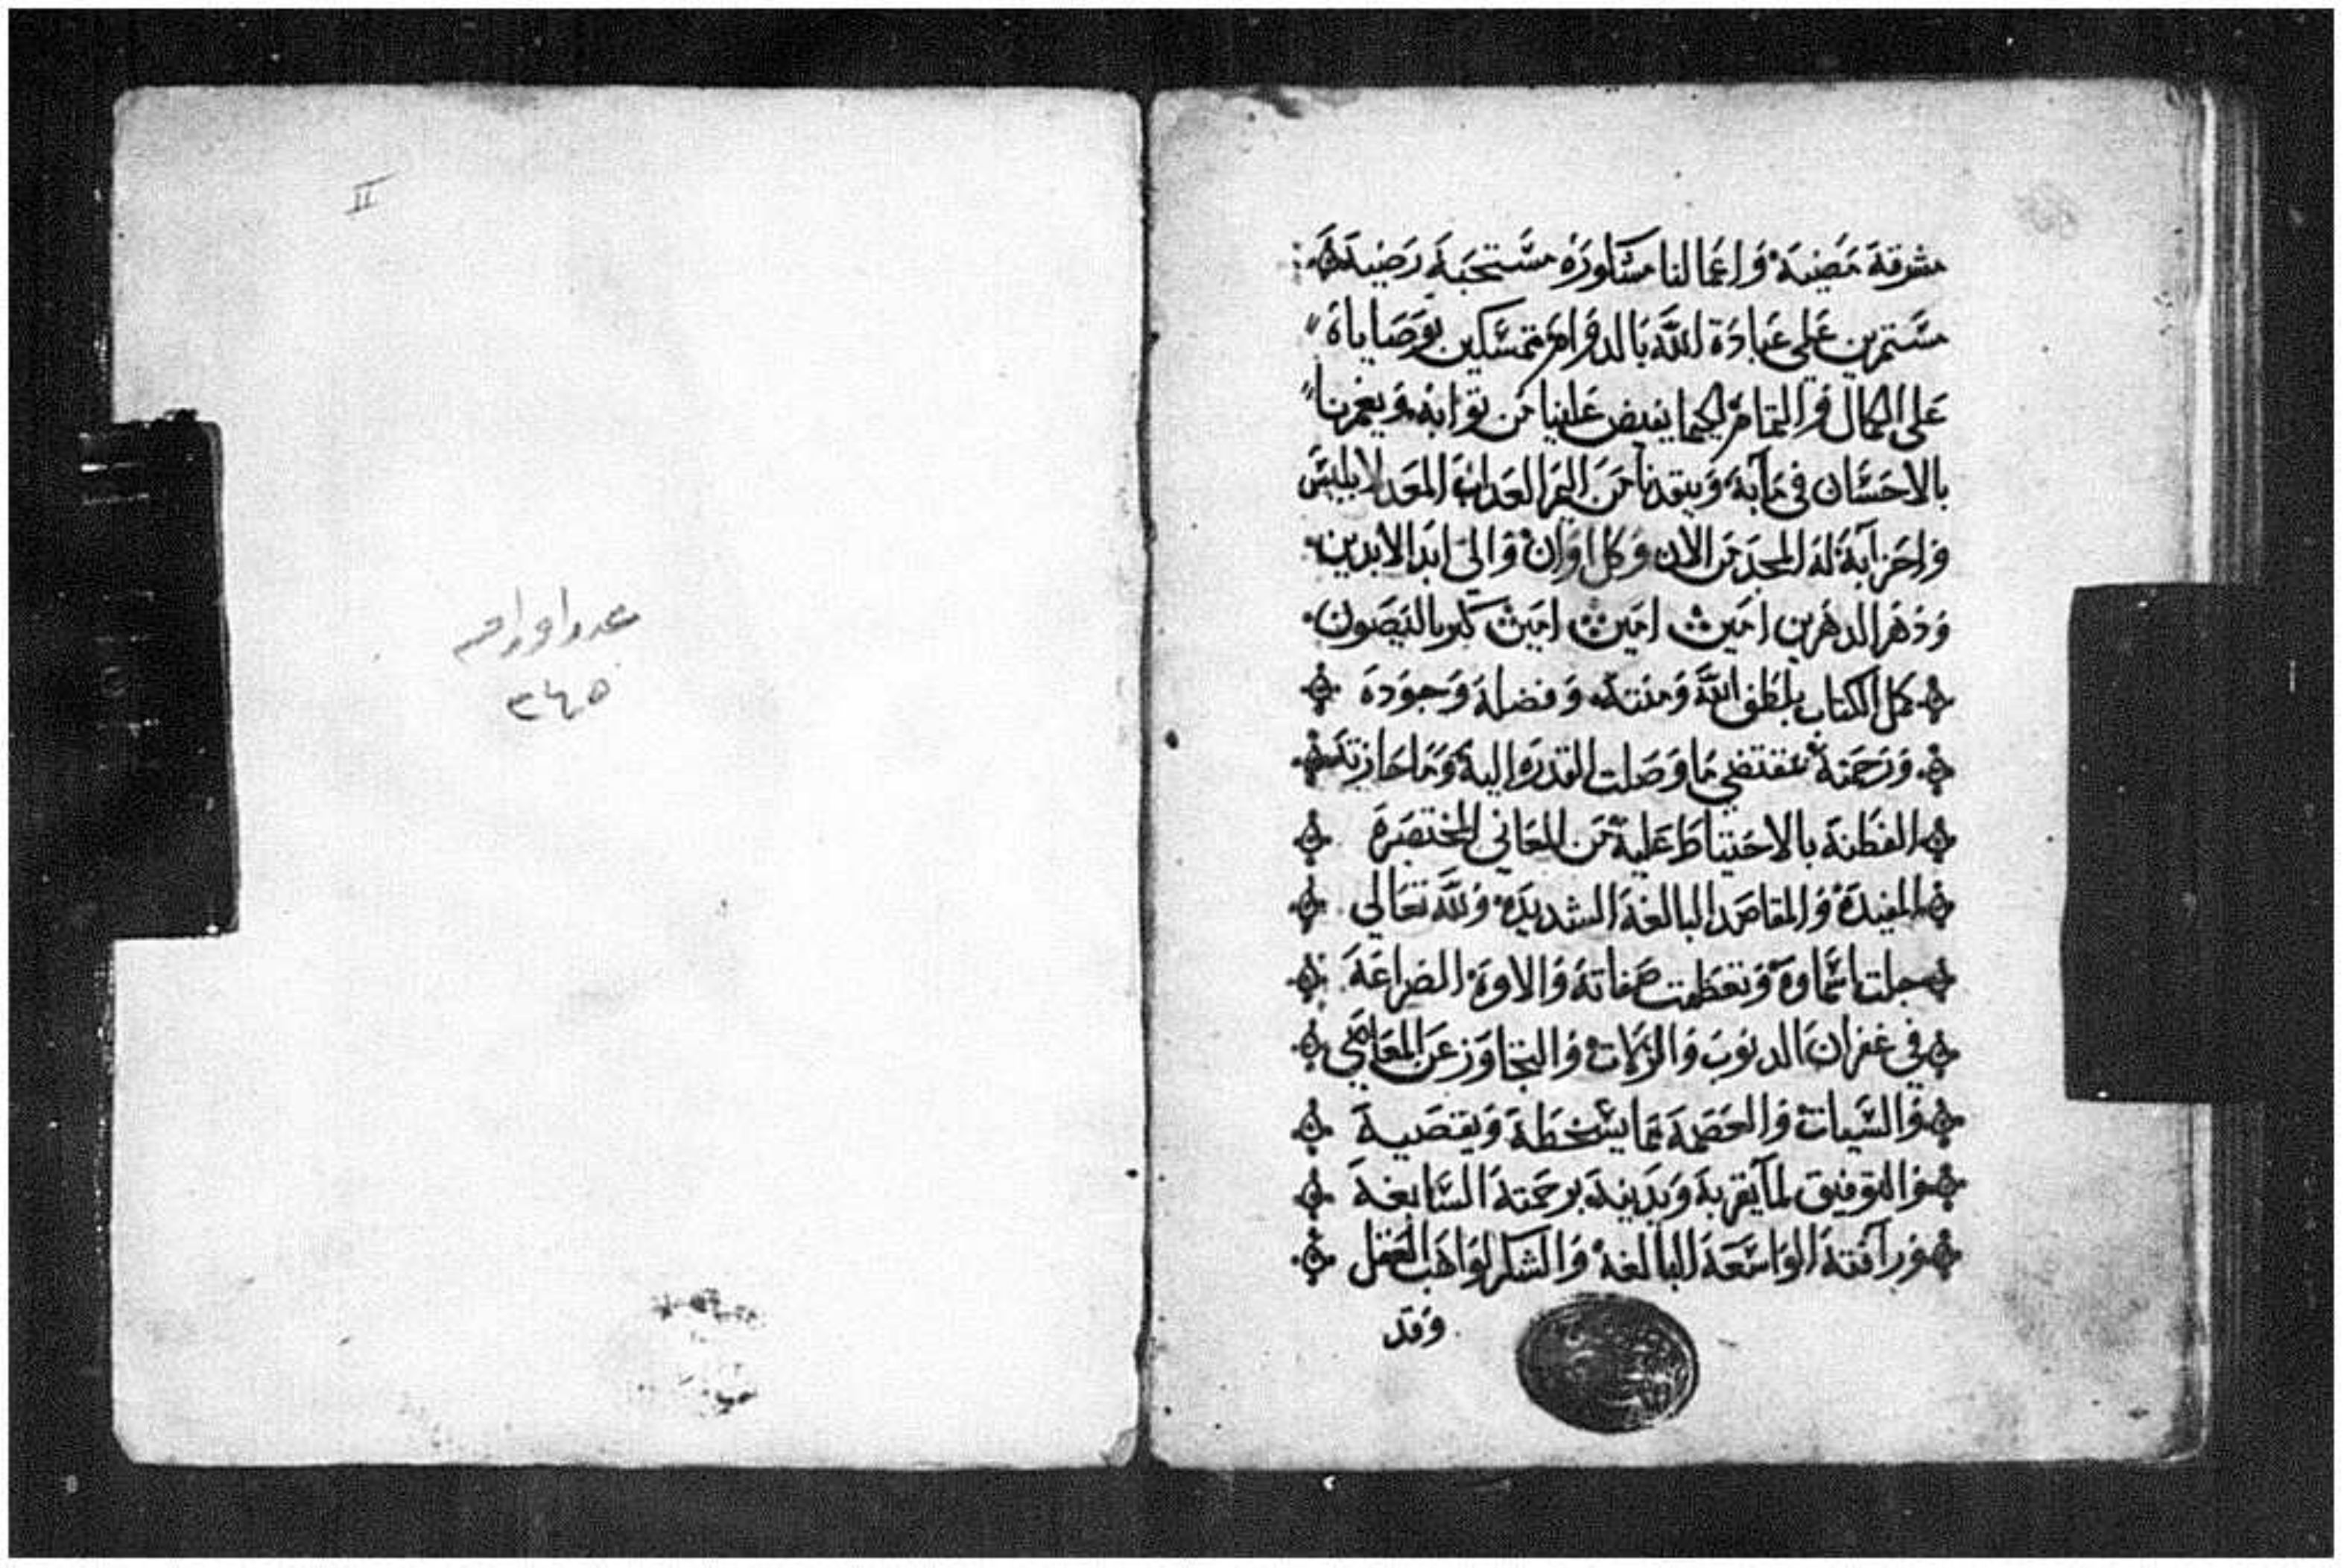 مشرقة مضية وَاعمالنا مشكورة مستحبة رضية
مستمرين على عبادة الله بالدوام متمسكين بوصاياه
على الكمال والتمام لكيما يفيض علينا من ثوابه ويغمرنا
بالاحسان في مآبه وينقدنا من اليم العداب المعد لابليس
واحزابه له المجد من الان وكل اوان والى ابد الابدين
ودهر الداهرين امين امين امين كيرياليصون
كمل الكتاب بلطف الله ومنته وفضله وجوده
ورحمته بمقتضي ما وصلت القدرة اليه وما حازته
الفطنة بالاحتياط عليه من المعاني المختصرة
المفيدة والمقاصد البالغة الشديدة ولله تعالي
جلت اسماوه وتعظمت صفاته والاوه الضراعة
في غفران الدنوب والزلات والتجاوز عن المعاصي
والسيات والعصمة مما يسخطه ويقصيه
والتوفيق لما يقربه ويدنيه برحمته السابغة
ورافته الواسعة البالغة والشكر لواهب العقل
وقد
II
عدد اوراقه
٣٤٥